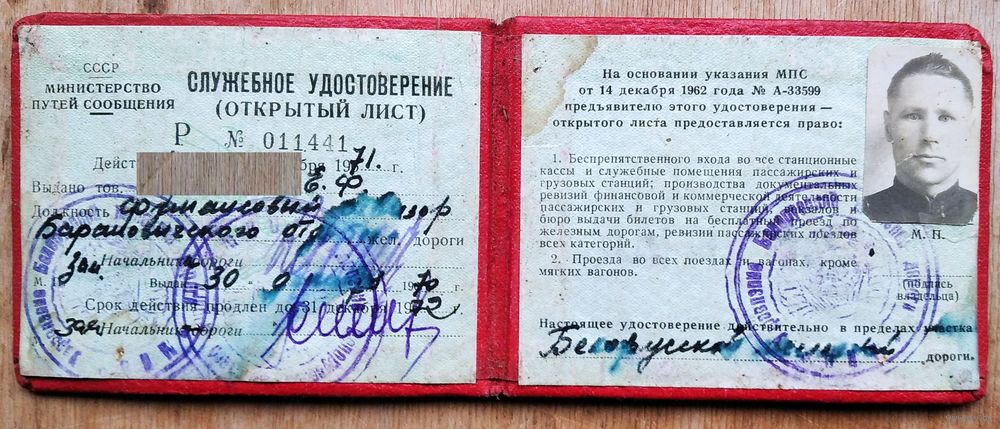 СССР
МИНИСТЕРСТВО
ПУТЕЙ СООБЩЕНИЯ
СЛУЖЕБНОЕ УДОСТОВЕРЕНИЕ
(ОТКРЫТЫЙ ЛИСТ)
Р № 011441
Дейст бря 1971. г.
Выдано тов. Е. Ф.
Должность финансовый
Барановичского отд жел. дороги
Зам. Начальник дороги
М. П. Выдан 30
Срок действия продлен до 31 декабря 1972
зам Начальник дороги
На основании указания МПС
от 14 декабря 1962 года № А-33599
предъявителю этого удостоверения —
открытого листа предоставляется право:
1. Беспрепятственного входа во все станционные
кассы и служебные помещения пассажирских и
грузовых станций; производства документальных
ревизий финансовой и коммерческой деятельности
пассажирских и грузовых станций, вокзалов и
бюро выдачи билетов на бесплатный проезд по
железным дорогам, ревизии пассажирских поездов
всех категорий.
2. Проезда во всех поездах и вагонах, кроме
мягких вагонов.
М. П.
(подпись
владельца)
Настоящее удостоверение действительно в пределах участка
Белорусской дороги.